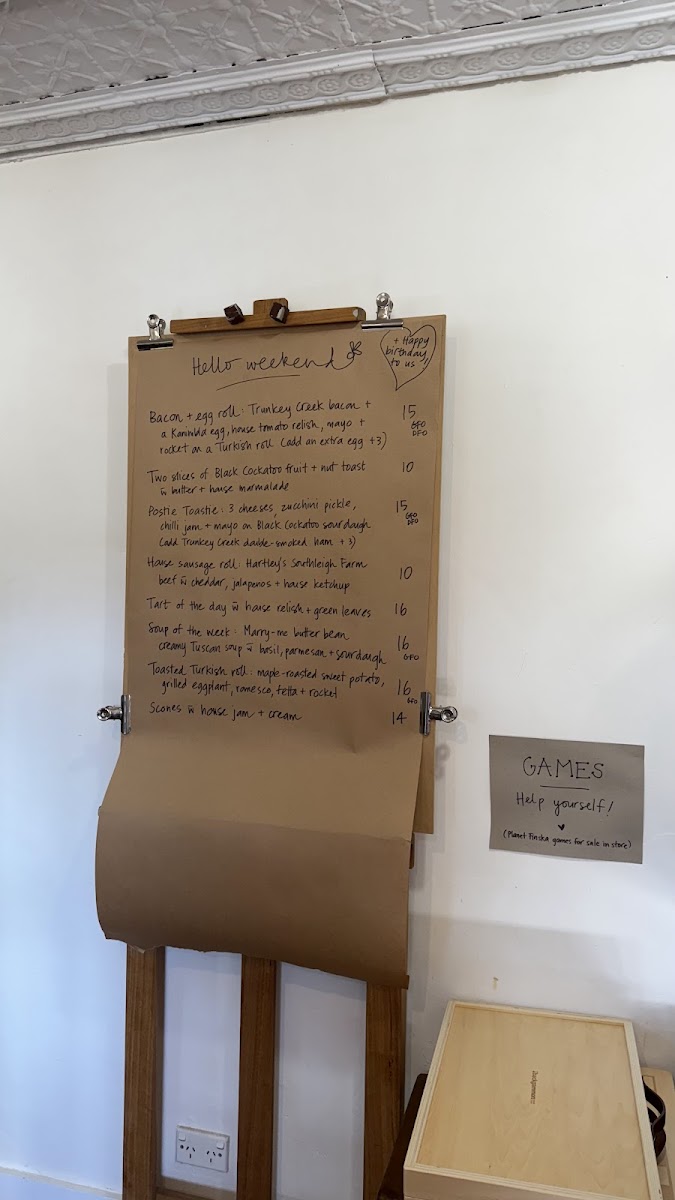 Hello weekend
+ Happy
birthday
to us!
Bacon + egg roll: Trunkey Creek bacon +
a Kanimbla egg, house tomato relish, mayo +
rocket on a Turkish roll (add an extra egg +3)
15
GFO
DFO
Two slices of Black Cockatoo fruit + nut toast
w butter + house marmalade
10
Postie Toastie: 3 cheeses, zucchini pickle,
chilli jam + mayo on Black Cockatoo sourdough
(add Trunkey Creek double-smoked ham + 3)
15
GFO
DFO
House sausage roll: Hartley's Southleigh Farm
beef w cheddar, jalapenos + house ketchup
10
Tart of the day w house relish + green leaves
16
Soup of the week: Marry-me butter bean
creamy Tuscan soup w basil, parmesan + sourdough
16
GFO
Toasted Turkish roll: maple-roasted sweet potato,
grilled eggplant, romesco, fetta + rocket
16
GFO
Scones w house jam + cream
14
GAMES
Help yourself!
(Planet Finska games for sale in store)